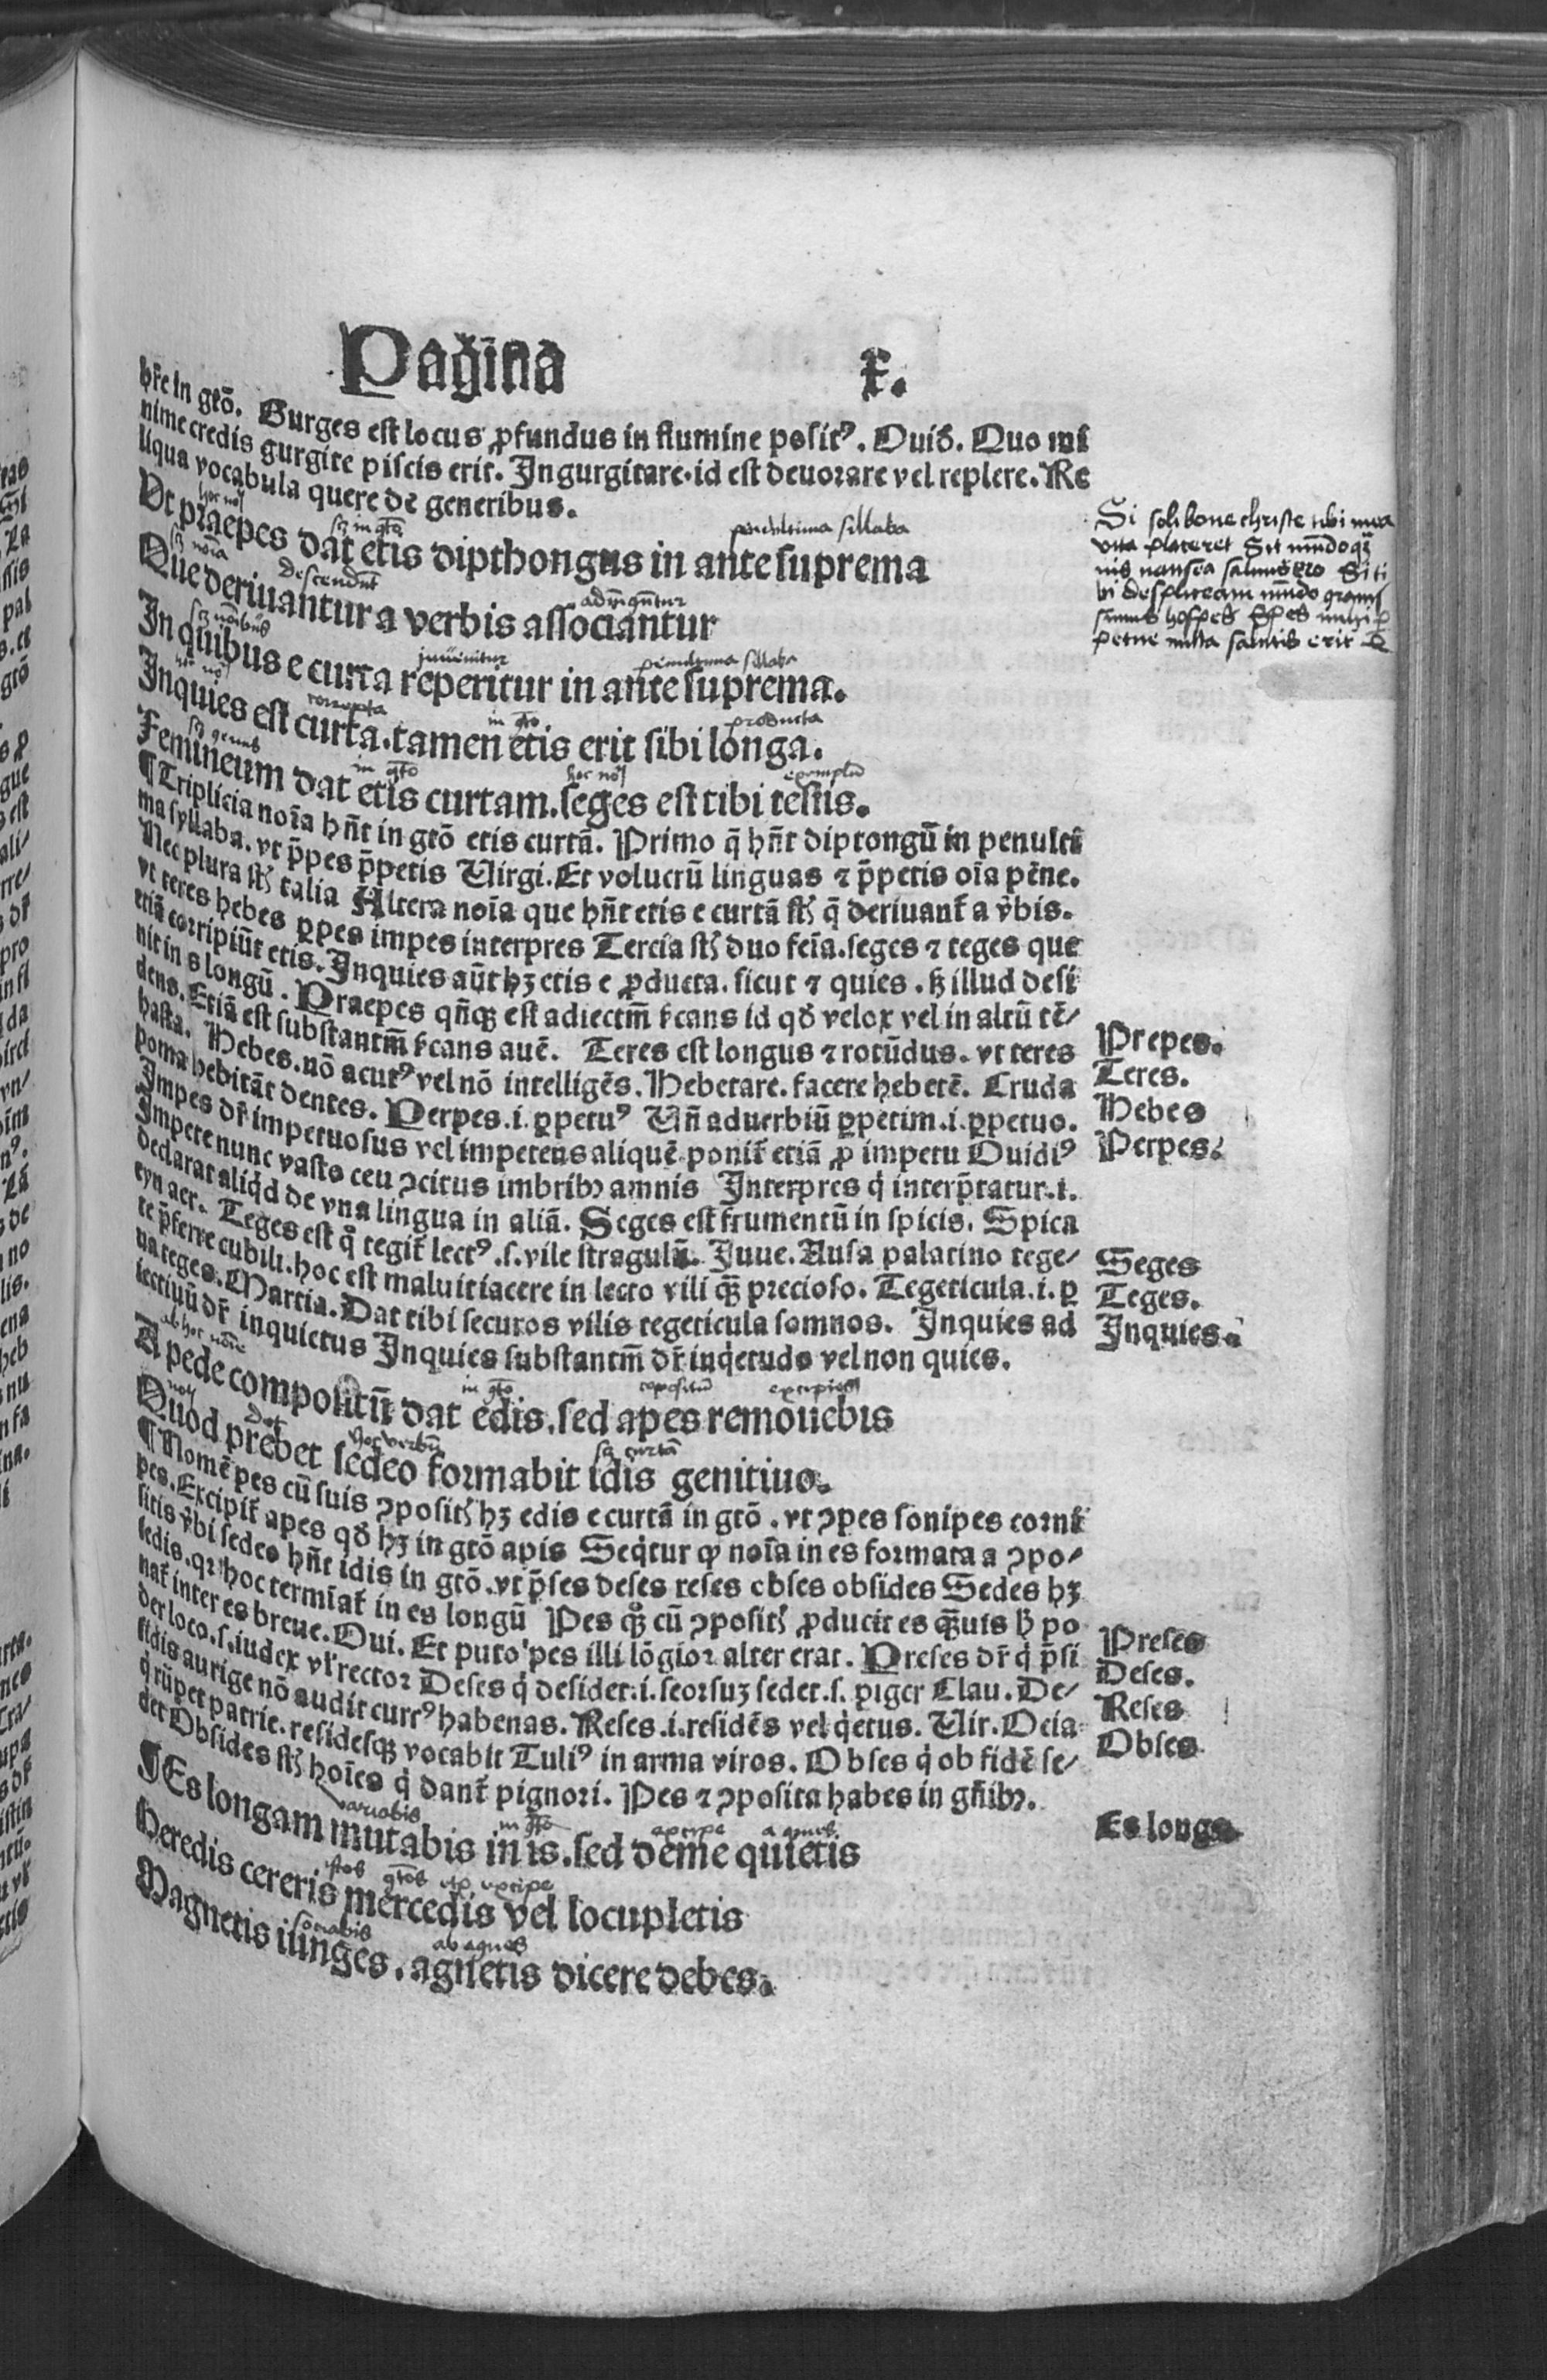 Pagina x.
hr̄e in gtō. Gurges est locus ꝓfundus in flumine posit⁹. Ouid̄. Quo mi
nime credis gurgite piscis erit. Ingurgitare.id est deuorare vel replere. Re
liqua vocabula quere de generibus.
hoc nō
sꝫ in gtō
penultima sillaba
Ut praepes dat etis dipthongus in ante suprema
sꝫ noīa
descendūt
adiūgūtur
Que deriuantur a verbis associantur
sꝫ noībus
inuenitur
penultima sillaba
In quibus e curta reperitur in ante suprema.
hoc nō
correpta
in gtō
producta
Inquies est curta.tamen etis erit sibi longa.
sꝫ genus
in gtō
hoc nō
exemplū
Femineum dat etis curtam.seges est tibi testis.
¶Triplicia noīa hn̄t in gtō etis curtā. Primo q̄ hn̄t diptongū in penulti
ma syllaba.vt p̄pes p̄petis Uirgi.Et volucrū linguas ⁊ p̄petis oīa pēne.
Nec plura sꝭ talia Altera noīa que hn̄t etis e curtā sꝭ q̄ deriuant̄ a v̄bis.
vt teres hebes ꝑpes impes interpres Tercia sꝭ duo feīa.seges ⁊ teges que
etiā corripiūt etis. Inquies aūt hꝫ etis e ꝓducta. sicut ⁊ quies. sꝫ illud desi
nit in s longū. Praepes qn̄qꝫ est adiectm̄ sicans id qd̄ velox vel in altū tē/
dens. Etiā est substantm̄ sicans auē. Teres est longus ⁊ rotūdus. vt teres
hasta. Hebes.nō acut⁹ vel nō intelligēs. Hebetare. facere hebetē. Cruda
poma hebitāt dentes. Perpes.i.ꝑpetu⁹ Un̄ aduerbiū ꝑpetim.i.ꝑpetuo.
Impes dr̄ impetuosus vel impetens aliquē ponit̄ etiā ꝓ impetu Ouidi⁹
Impete nunc vasto ceu ꝯcitus imbribꝫ amnis Interpres q̇ interp̄tatur.i.
declarat aliq̇d de vna lingua in aliā. Seges est frumentū in spicis. Spica
cyn aer. Teges est q̊ tegit̄ lect⁹.s.vile stragulū. Juue. Ausa palatino tege/
te p̄ferre cubili.hoc est maluit iacere in lecto vili qꝫ precioso. Tegeticula.i.ꝑ
ua teges. Marcia. Dat tibi securos vilis tegeticula somnos. Inquies ad
iectiuū dr̄ inquietus Inquies substantm̄ dr̄ inq̇etudo vel non quies.
ab hoc noīe
in gtō
cōpositū
excipies
A pede compositū dat edis.sed apes remouebis
nō
Dat
hoc verbū
sꝫ curtā
Quod prebet sedeo formabit idis genitiuo.
¶Nomē pes cū suis ꝯpositꝭ hꝫ edis e curtā in gtō. vt ꝯpes sonipes corni
pes. Excipit̄ apes qd̄ hꝫ in gtō apis Seq̇tur ꝙ noīa in es formata a ꝯpo/
sitis v̄bi sedeo hn̄t idis in gtō.vt p̄ses deses reses obses obsides Sedes hꝫ
sedis.qꝛ hoc termīat̄ in es longū Pes qꝫ cū ꝯpositꝭ ꝓducit es qꝫuis h̄ po
nat̄ inter es breue. Oui. Et puto pes illi lōgior alter erat. Preses dr̄ q̇ p̄si
det loco.s.iudex vl̄ rector Deses q̇ desidet.i.seorsuꝫ sedet.s. piger Clau. De/
sidis aurige nō audit curr⁹ habenas. Reses.i.residēs vel q̇etus. Uir. Ocia
q̇ rūpet patrie.residesqꝫ vocabit Tuli⁹ in arma viros. Obses q̇ ob fidē se/
det Obsides sꝭ hoīes q̇ dant̄ pignori. Pes ⁊ ꝯposita habes in gn̄ibꝫ.
variabis
in gtō
excipe
a quies
¶Es longam mutabis in is.sed deme quietis
istos gtōs
excipe
Heredis cereris mercedis vel locupletis
sociabis
ab agnes
Magnetis iunges.agnetis dicere debes.
Si soli bone christe tibi mea
vita placeret Sit mūdo
Prepes.
Teres.
Hebes
Perpes.
Seges
Teges.
Inquies.
Preses
Deses.
Reses
Obses
Es longa